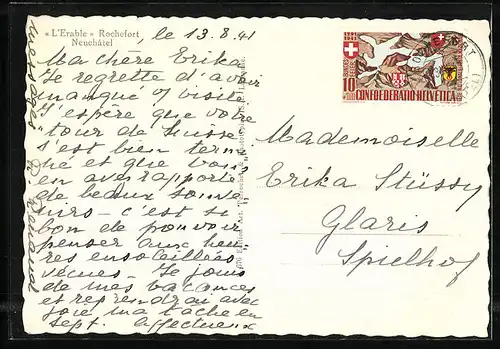 « L'Erable » Rochefort
Neuchâtel
le 13.8.41
Ma chère Erika
Je regrette d'avoir
manqué v/ visite
J'espère que votre
tour de Suisse
s'est bien termi
né et que vous
en avez rapporté
de beaux souve
nirs - c'est si
bon de pouvoir
penser aux heu
res ensoleillées
vécues - Je jouis
de mes vacances
et reprendrai avec
joie ma tâche en
sept. affectueux
messages
1291
1941
10
BUNDES
FEIER
CONFOEDERATIO HELVETICA
Mademoiselle
Erika Stüssy
Glaris
Spielhof